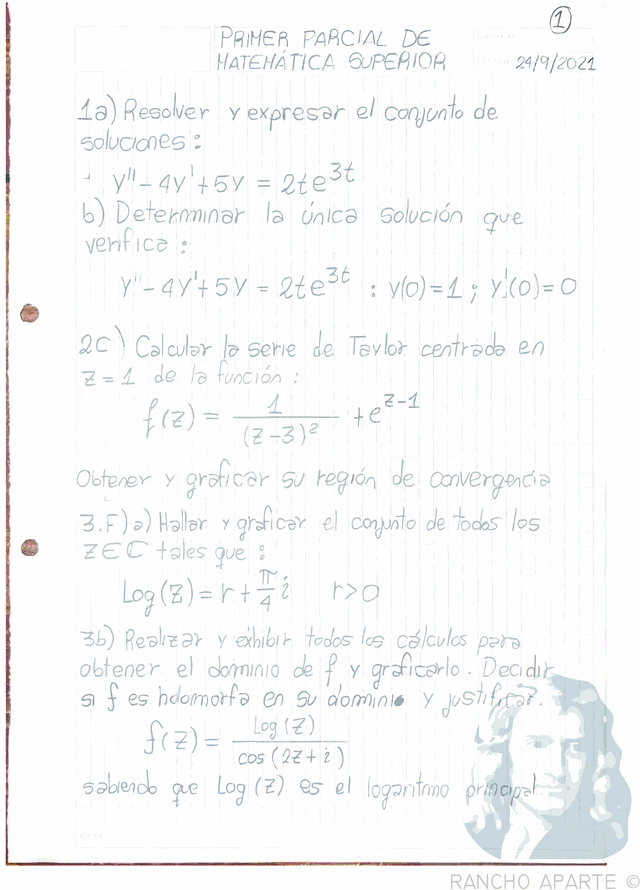 1
PRIMER PARCIAL DE
MATEMÁTICA SUPERIOR
24/9/2021
1a) Resolver y expresar el conjunto de
soluciones:
y'' - 4y' + 5y = 2te^{3t}
b) Determinar la única solución que
verifica:
y'' - 4y' + 5y = 2te^{3t} : y(0) = 1 ; y'(0) = 0
2C) Calcular la serie de Taylor centrada en
z = 1 de la función:
f(z) = 1/(z-3)² + e^{z-1}
Obtener y graficar su región de convergencia
3.F) a) Hallar y graficar el conjunto de todos los
Z∈ℂ tales que:
Log(z) = r + π/4 i r>0
3b) Realizar y exhibir todos los cálculos para
obtener el dominio de f y graficarlo. Decidir
si f es holomorfa en su dominio y justificar.
f(z) = Log(z)/cos(2z+i)
sabiendo que Log(z) es el logaritmo principal
RANCHO APARTE ©